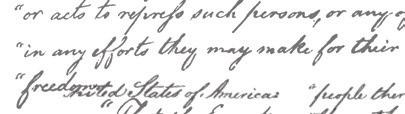 "or acts to repress such persons, or any of
"in any efforts they may make for their
"freedom.
United States of America "people ther